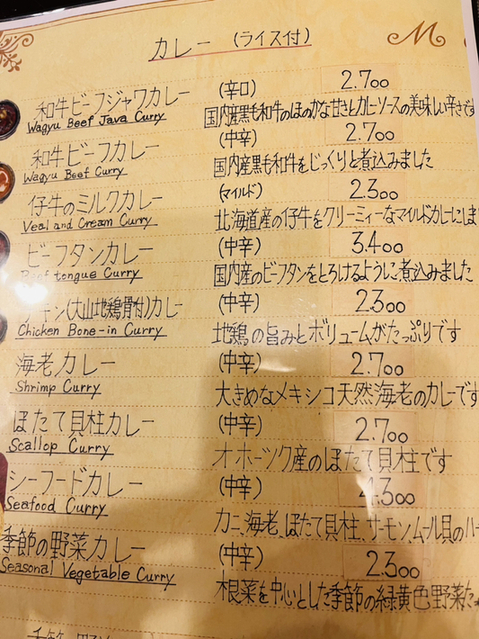 カレー (ライス付)
M
和牛ビーフジャワカレー (辛口) 2.700
Wagyu Beef Java Curry 国内産黒毛和牛のほのかな甘さとカレーソースの美味しい辛さです
和牛ビーフカレー (中辛) 2.700
Wagyu Beef Curry 国内産黒毛和牛をじっくりと煮込みました
仔牛のミルクカレー (マイルド) 2.300
Veal and Cream Curry 北海道産の仔牛をクリーミィーなマイルドカレーにしま
ビーフタンカレー (中辛) 3.400
Beef tongue Curry 国内産のビーフタンをとろけるように煮込みました
チキン(大山地鶏骨付)カレー (中辛) 2.300
Chicken Bone-in Curry 地鶏の旨みとボリュームがたっぷりです
海老カレー (中辛) 2.700
Shrimp Curry 大きめなメキシコ天然海老のカレーです
ほたて貝柱カレー (中辛) 2.700
Scallop Curry オホーツク産のほたて貝柱です
シーフードカレー (中辛) 4.300
Seafood Curry カニ、海老、ほたて貝柱、サーモン、ムール貝のハー
季節の野菜カレー (中辛) 2.300
Seasonal Vegetable Curry 根菜を中心とした季節の緑黄色野菜た